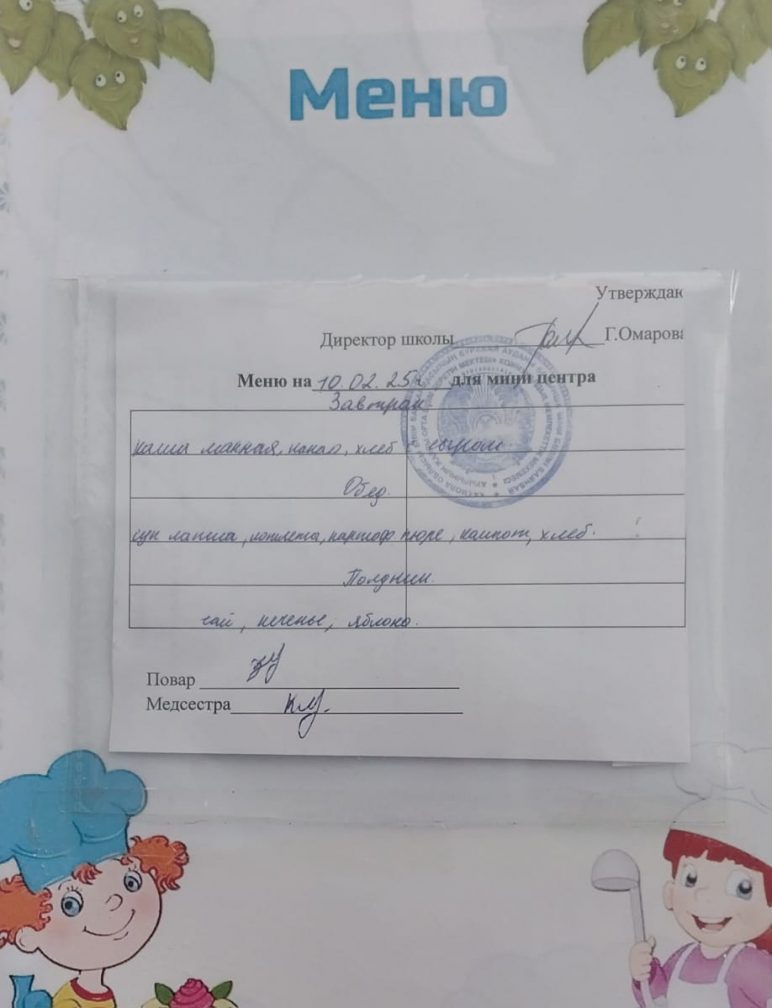 Меню
Утверждаю
Директор школы Г.Омарова
Меню на 10.02.25г. для мини центра
Завтрак
каша манная, какао, хлеб с сыром.
Обед.
суп лапша, котлета, картоф. пюре, компот, хлеб.
Полдник.
чай, печенье, яблоко.
Повар
Медсестра